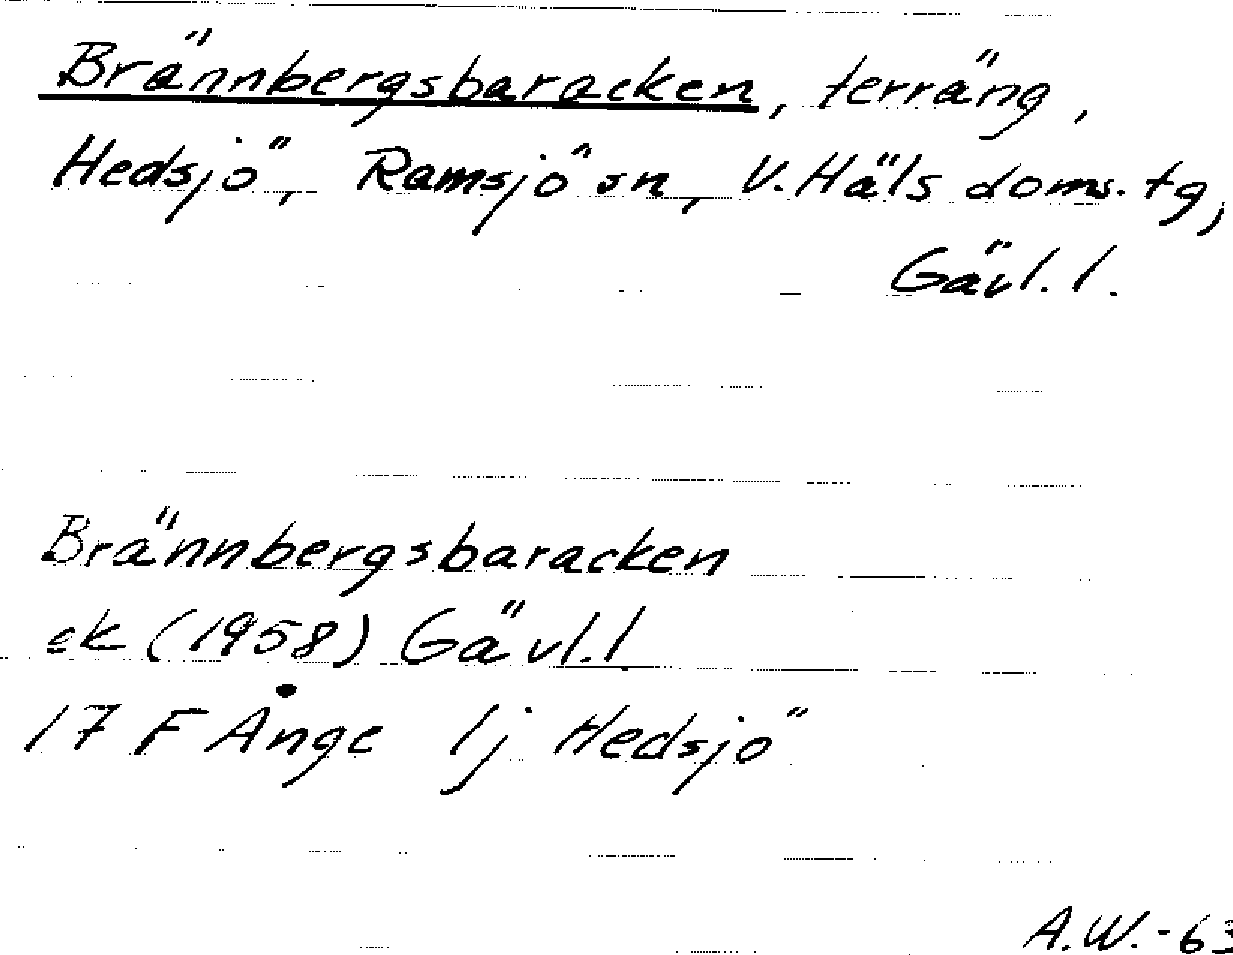 Brännbergsbaracken, terräng,
Hedsjö, Ramsjö sn, V. Häls doms. tg,
Gävl. l.
Brännbergsbaracken
ek (1958) Gävl. l
17 F Ånge 1j Hedsjö
A.W.-63